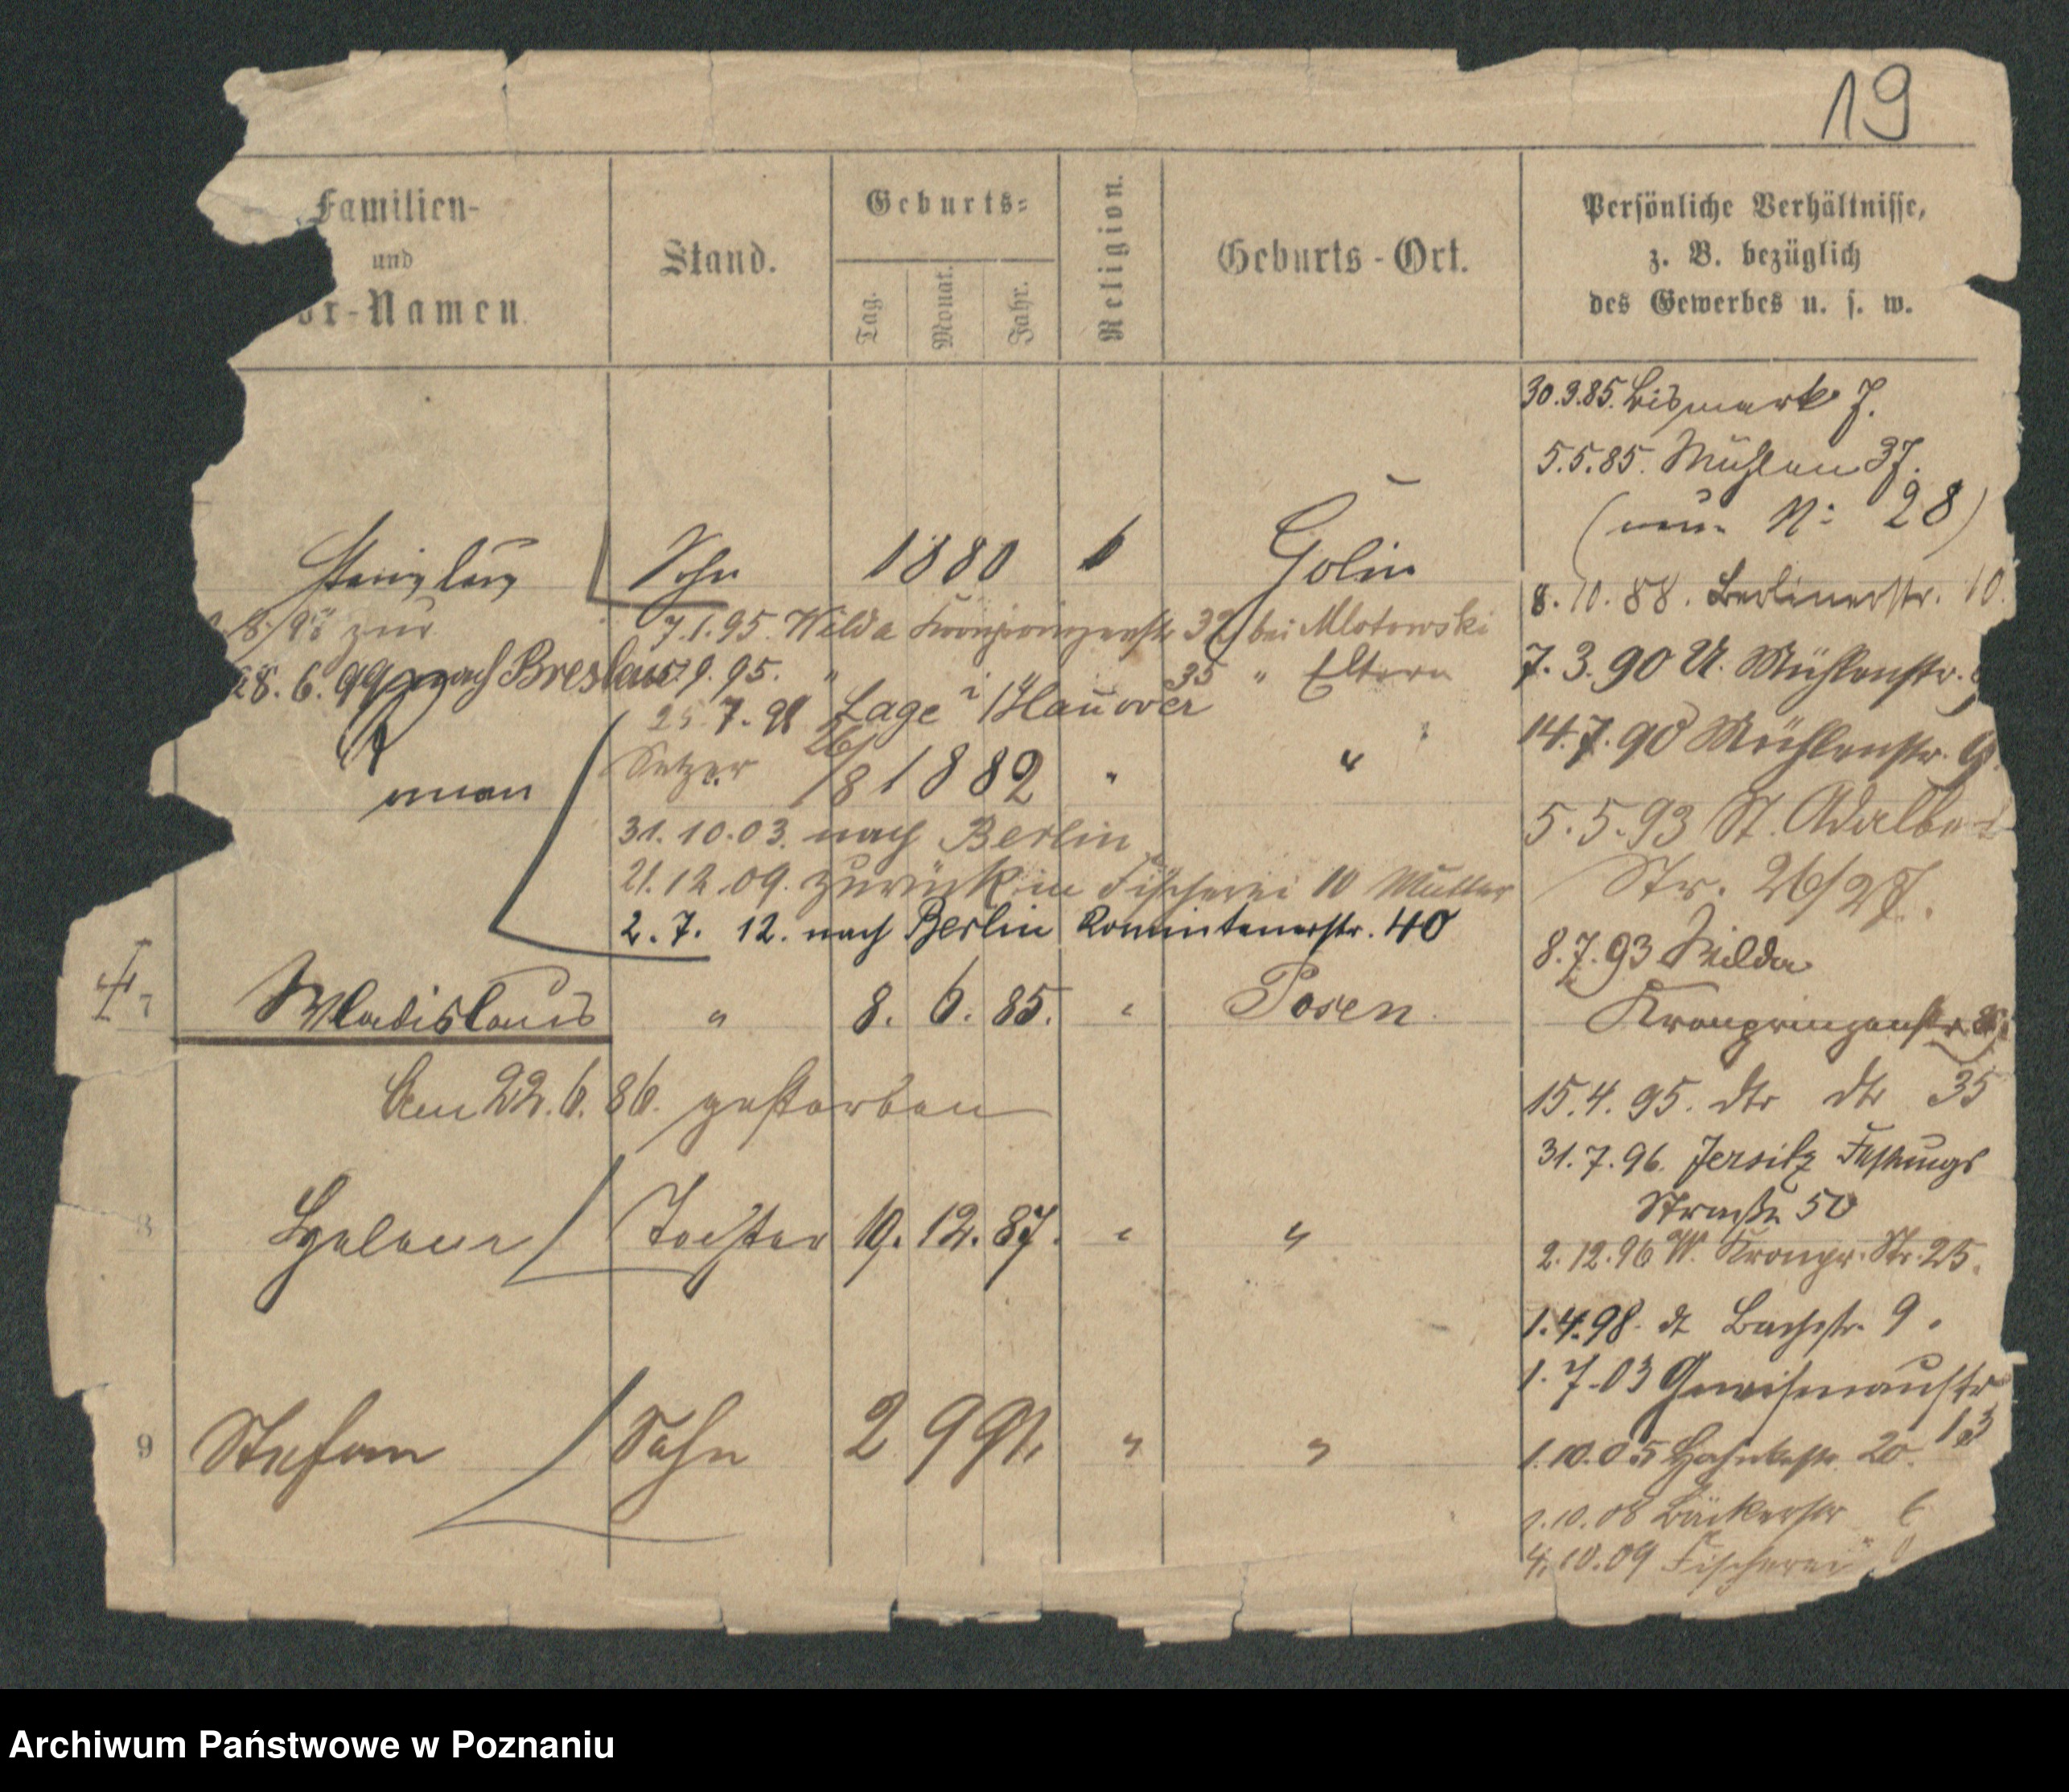 19
Familien-
und
or-Namen.
Stand.
Geburts-
Tag.
Monat.
Jahr.
Religion.
Geburts-Ort.
Persönliche Verhältnisse,
z. B. bezüglich
des Gewerbes u. s. w.
30.3.85. Bismark 7.
5.5.85. Mühlen 37.
(neue No: 28)
Sohn 1880 Golin
8.10.88. Berlinerstr. 10.
zur
7.1.95. Wilda Kronprinzenstr 32 bei Mlotowski
28.6.99 nach Breslau 9.95. " 35 " Eltern
7.3.90 U. Mühlenstr.
25.7.98 Lage i/Hanover
14.7.90 Mühlenstr.
man Setzer 26/8 1882 " "
5.5.93 St. Adalbert
31.10.03. nach Berlin
Str. 26/27.
21.12.09. zurück in Fischerei 10 Mutter
2.7.12. nach Berlin Romintenerstr. 40
8.7.93 Wilda
Kronprinzenstr
7 Wladislaus " 8. 6. 85. " Posen.
Am 22.6.86. gestorben
15.4.95. dto dto 35
31.7.96. Jersitz Festungs
Straße 50
8 Helene Tochter 19. 12. 87. " "
2.12.96 W. Kronpr. Str. 25.
1.4.98. dt Bachstr. 9.
1.7.03 Gneisenaustr
13
9 Stefan Sohn 2 9 91. " "
1.10.05 20.
1.10.08 Bäckerstr
4.10.09 Fischerei
Archiwum Państwowe w Poznaniu